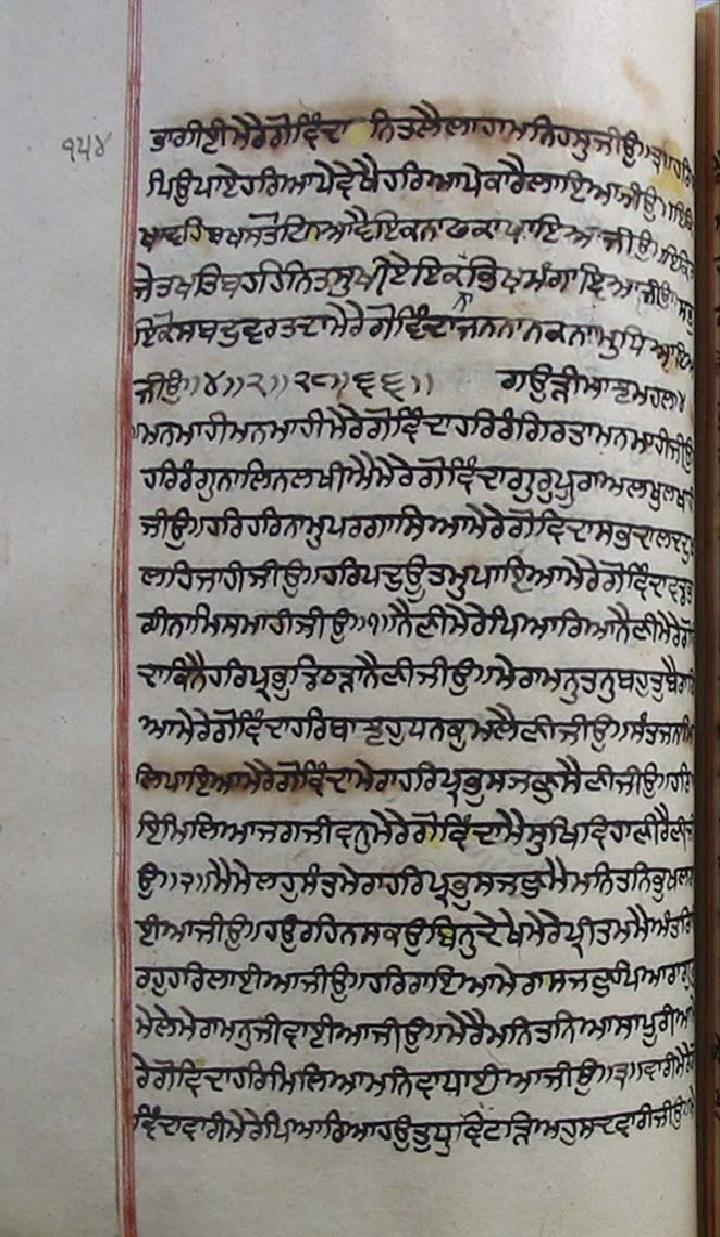 ੧੫੪
ਭਾਗੀਈਮੇਰੇਗੋਵਿੰਦਾ ਨਿਤਲੈਲਾਹਾਮਨਿਹਸੁਜੀਉ॥੩॥ਹਰਿ
ਪਿਉਪਾਏਹਰਿਆਪੇਵੇਖੈਹਰਿਆਪੇਕਾਰੈਲਾਇਆਜੀਉ॥ਇਕਿ
ਖਾਵਹਿਬਖਸਤੋਟਿਨਆਵੈਇਕਨਾਫਕਾਪਾਇਆਜੀਉ॥ਇਕਿ
ਜੇਤਖਤਿਬਹਹਿਨਿਤਸੁਖੀਏਇਕਨਾਭਿਖਮੰਗਾਇਆਜੀਉ॥ਸਭੁ
ਇਕੋਸਬਦੁਵਰਤਦਾਮੇਰੇਗੋਵਿੰਦਾਜਨਨਾਨਕਨਾਮੁਧਿਆਇਆ
ਜੀਉ॥੪॥੨॥੨੮॥੬੬॥ ਗਉੜੀਮਾਝਮਹਲਾ੪
ਮਨਮਾਹੀਮਨਮਾਹੀਮੇਰੇਗੋਵਿੰਦਾਹਰਿਰੰਗਿਰਤਾਮਨਮਾਹੀਜੀਉ
ਹਰਿਰੰਗੁਨਾਲਿਨਲਖੀਐਮੇਰੇਗੋਵਿੰਦਾਗੁਰੁਪੂਰਾਅਲਖੁਲਖਾਹੀ
ਜੀਉ॥ਹਰਿਹਰਿਨਾਮੁਪਰਗਾਸਿਆਮੇਰੇਗੋਵਿੰਦਾਸਭਦਾਲਦਦੁਖ
ਲਹਿਜਾਹੀਜੀਉ॥ਹਰਿਪਦੁਊਤਮੁਪਾਇਆਮੇਰੇਗੋਵਿੰਦਾਵਡਭਾ
ਗੀਨਾਮਿਸਮਾਹੀਜੀਉ॥੧॥ਨੈਣੀਮੇਰੇਪਿਆਰਿਆਨੈਣੀਮੇਰੇਗੋ
ਦਾਕਿਨੈਹਰਿਪ੍ਰਭੁਡਿਠੜਾਨੈਣੀਜੀਉ॥ਮੇਰਾਮਨੁਤਨੁਬਹੁਤੁਬੈਰਾਗਿ
ਆਮੇਰੇਗੋਵਿੰਦਾਹਰਿਬਾਝਹੁਧਨਕੁਮਲੈਣੀਜੀਉ॥ਸੰਤਜਨਾਮਿ
ਲਿਪਾਇਆਮੇਰੇਗੋਵਿੰਦਾਮੇਰਾਹਰਿਪ੍ਰਭੁਸਜਣੁਸੈਣੀਜੀਉ॥ਹਰਿ
ਇਮਿਲਿਆਜਗਜੀਵਨੁਮੇਰੇਗੋਵਿੰਦਾਮੈਸੁਖਿਵਿਹਾਣੀਰੈਣੀਜੀ
ਉ॥੨॥ਮੈਮੇਲਹੁਸੰਤਮੇਰਾਹਰਿਪ੍ਰਭੁਸਜਣੁਮੈਮਨਿਤਨਿਭੁਖਲਗਾ
ਈਆਜੀਉ॥ਹਉਰਹਿਨਸਕਉਬਿਨੁਦੇਖੇਮੇਰੇਪ੍ਰੀਤਮਮੈਅੰਤਰਿਬਿ
ਰਹੁਹਰਿਲਾਈਆਜੀਉ॥ਹਰਿਰਾਇਆਮੇਰਾਸਜਣੁਪਿਆਰਾਗੁਰੁ
ਮੇਲੇਮੇਰਾਮਨੁਜੀਵਾਈਆਜੀਉ॥ਮੇਰੈਮਨਿਤਨਿਆਸਾਪੂਰੀਆਮੇ
ਰੇਗੋਵਿੰਦਾਹਰਿਮਿਲਿਆਮਨਿਵਾਧਾਈਆਜੀਉ॥੩॥ਵਾਰੀਮੇਰੇਗੋ
ਵਿੰਦਾਵਾਰੀਮੇਰੇਪਿਆਰਿਆਹਉਤੁਧੁਵਿਟੜਿਅਹੁਸਦਵਾਰੀਜੀਉ॥ਮੇ